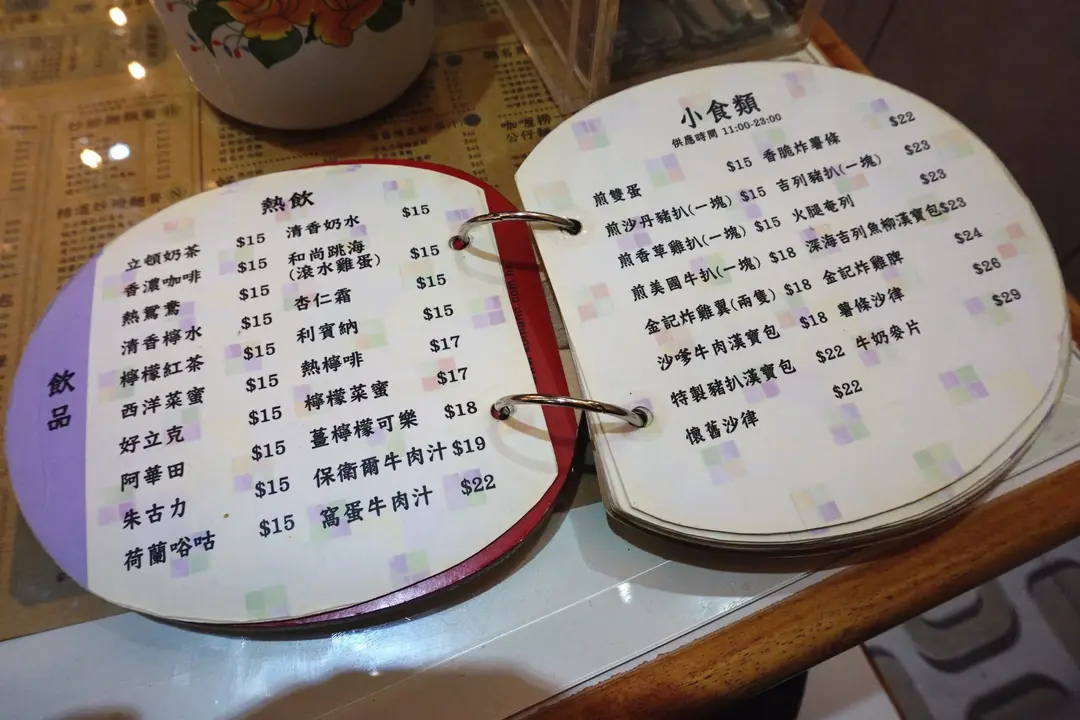 飲品
熱飲
立頓奶茶 $15 清香奶水 $15
香濃咖啡 $15 和尚跳海 $15
(滾水雞蛋)
熱鴛鴦 $15 杏仁霜 $15
清香檸水 $15 利賓納 $15
檸檬紅茶 $15 熱檸啡 $17
西洋菜蜜 $15 檸檬菜蜜 $17
好立克 $15 薑檸檬可樂 $18
阿華田 $15 保衛爾牛肉汁 $19
朱古力 $15 窩蛋牛肉汁 $22
荷蘭唂咕 $15
小食類
供應時間 11:00-23:00
煎雙蛋 $15 香脆炸薯條 $22
煎沙丹豬扒(一塊) $15 吉列豬扒(一塊) $23
煎香草雞扒(一塊) $15 火腿奄列 $23
煎美國牛扒(一塊) $18 深海吉列魚柳漢寶包 $23
金記炸雞翼(兩隻) $18 金記炸雞脾 $24
沙嗲牛肉漢寶包 $18 薯條沙律 $26
特製豬扒漢寶包 $22 牛奶麥片 $29
懷舊沙律 $22
咖喱撈
公仔麵